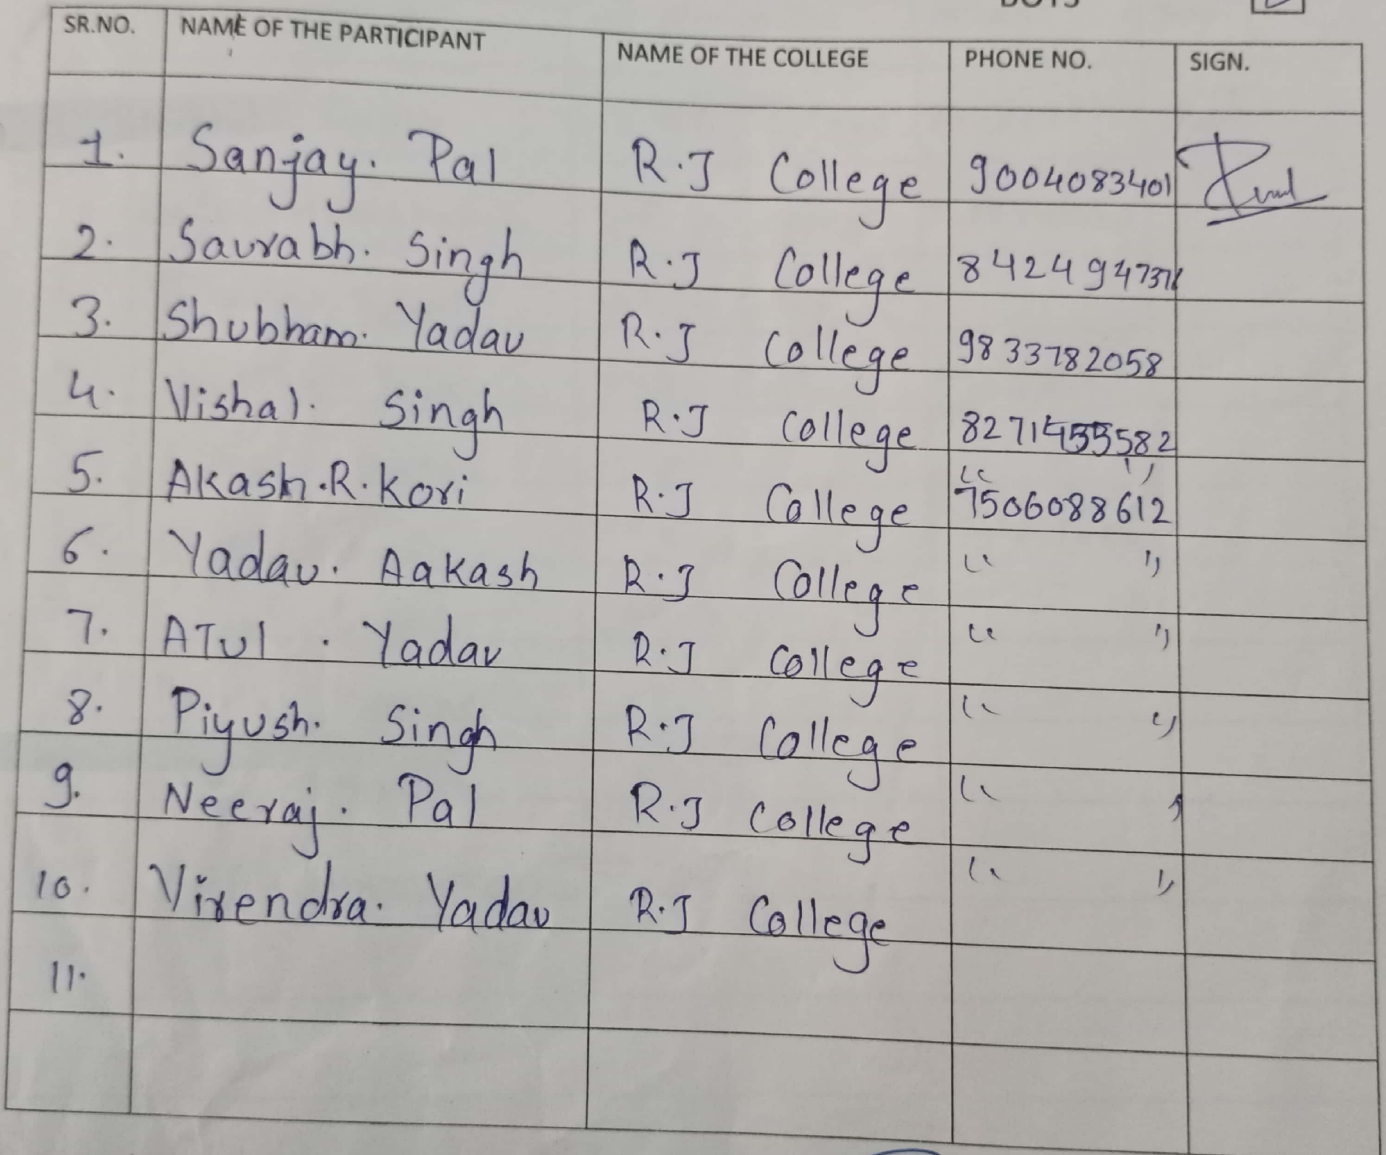 BOYS
SR.NO. NAME OF THE PARTICIPANT NAME OF THE COLLEGE PHONE NO. SIGN.
1. Sanjay. Pal R.J College 9004083401
2. Saurabh. Singh R.J College
3. Shubham. Yadav R.J College 9833782058
4. Vishal. Singh R.J College
5. Akash.R.Kori R.J College 7506088612
6. Yadav. Aakash R.J College “ ”
7. ATul . Yadav R.J College “ ”
8. Piyush. Singh R.J College “ ”
9. Neeraj. Pal R.J College “ ”
10. Virendra. Yadav R.J College “ ”
11.